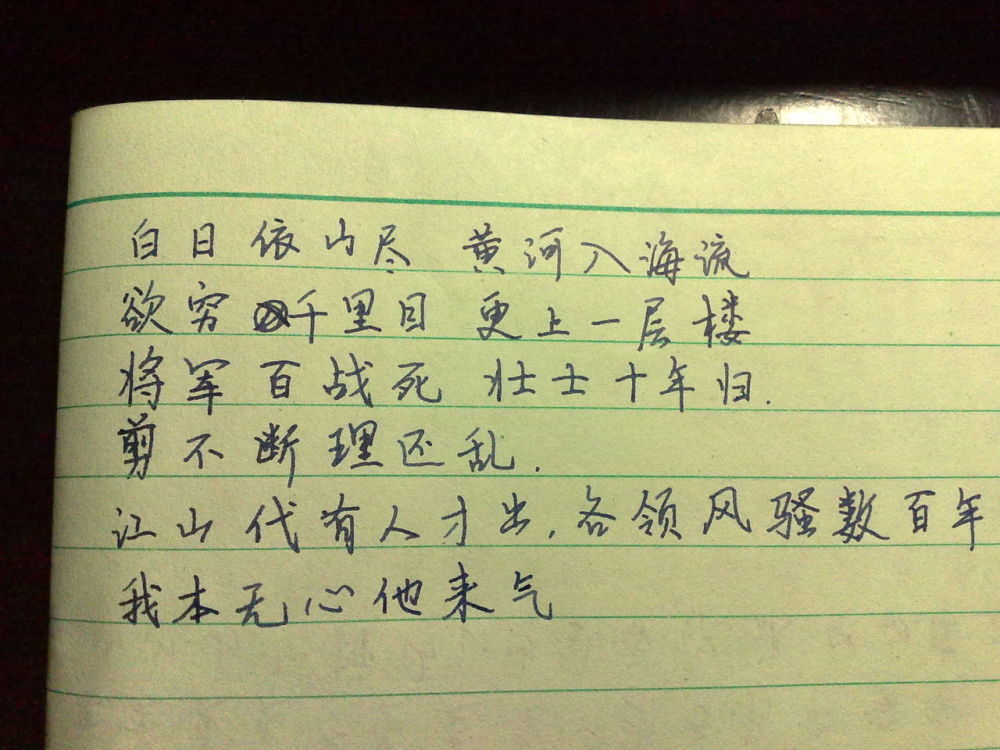 白日依山尽 黄河入海流
欲穷千里目 更上一层楼
将军百战死 壮士十年归.
剪不断理还乱.
江山代有人才出,各领风骚数百年
我本无心他来气